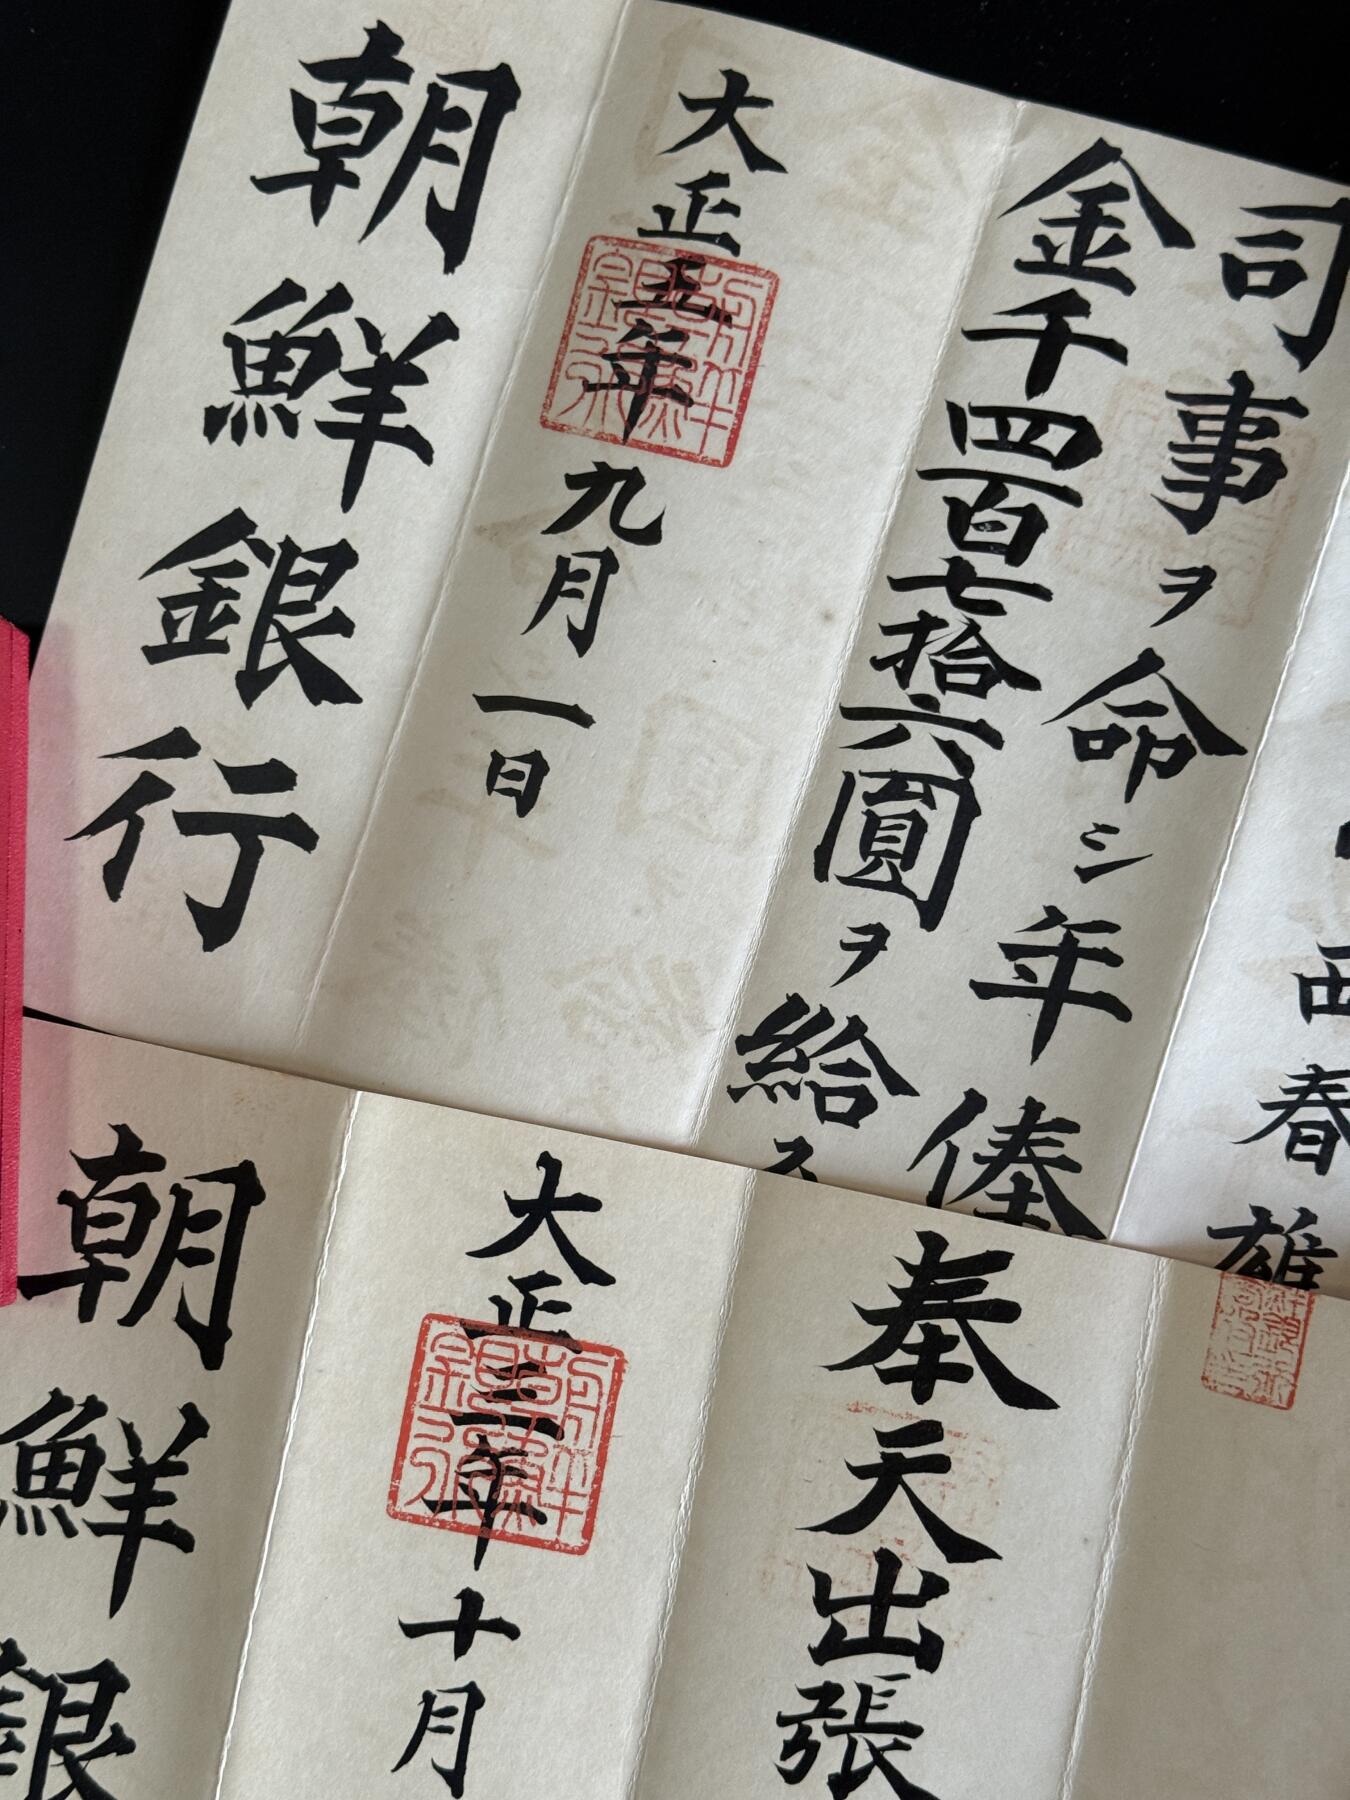 西春雄
司事ヲ命シ年俸
金千四百七拾六圓ヲ給ス
大正五年九月一日
朝鮮
銀行
朝鮮銀行
奉天出張
大正三年十月
朝鮮
銀行
朝鮮銀